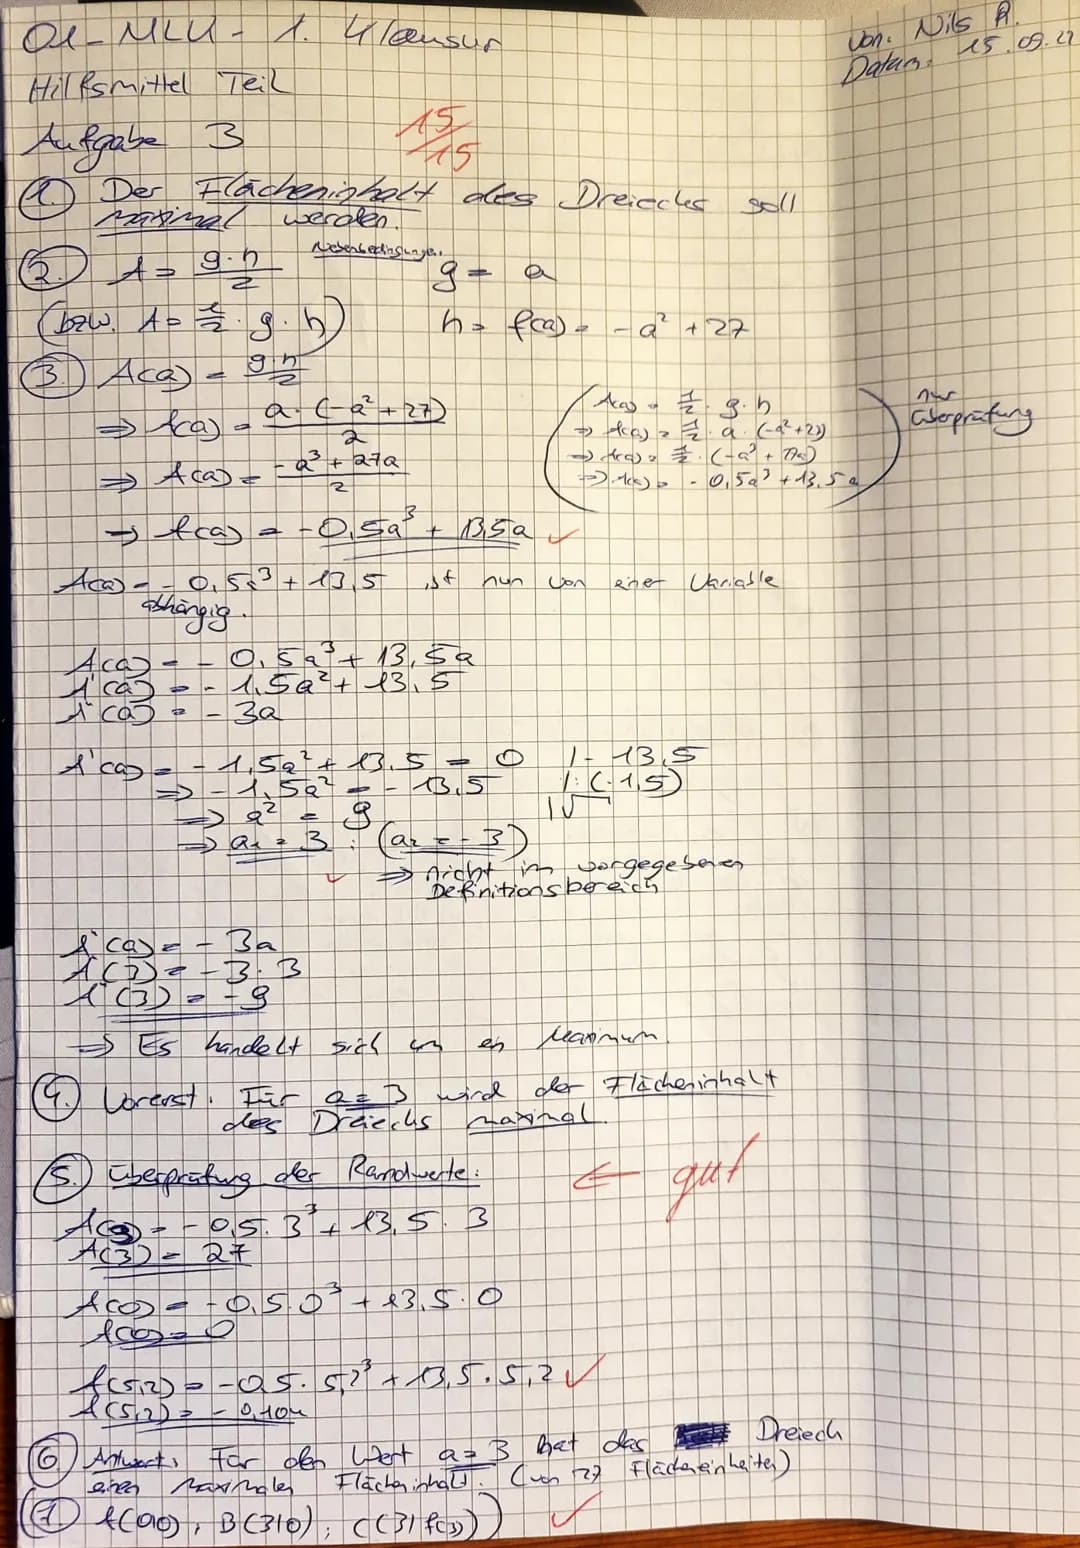 Q1-MLK- 1. Klausur
von: Nils R.
Datum: 15.09.21
Hilfsmittel Teil
Aufgabe 3
15/15
1. Der Flächeninhalt des Dreiecks soll
maximal werden.
2. A = g·h/2 Nebenbedingungen: g = a
(bzw. A = 1/2 · g · h) h = f(a) = -a² + 27
3. A(a) = g·h/2
⇒ A(a) = a·(-a²+27)/2
⇒ A(a) = -a³+27a/2
⇒ A(a) = -0,5a³ + 13,5a ✓
(A(a) = 1/2 · g·h
⇒ A(a) = 1/2 · a · (-a²+27)
⇒ A(a) = 1/2 · (-a³ + 27a)
⇒ A(a) = -0,5a³ + 13,5a)
nur
Überprüfung
A(a) = -0,5a³ + 13,5 ist nun von einer Variable
abhängig.
A(a) = -0,5a³ + 13,5a
A'(a) = -1,5a² + 13,5
A''(a) = -3a
A'(a) = -1,5a² + 13,5 = 0 |-13,5
⇒ -1,5a² = -13,5 |:(-1,5)
⇒ a² = 9 |√
⇒ a₁ = 3 ; (a₂ = -3)
✓ ⇒ nicht im vorgegebenen
Definitionsbereich
A''(a) = -3a
A''(3) = -3·3
A''(3) = -9
⇒ Es handelt sich um ein Maximum.
4. Vorerst: Für a=3 wird der Flächeninhalt
des Dreiecks maximal.
5. Überprüfung der Randwerte: ← gut
A(3) = -0,5·3³ + 13,5·3
A(3) = 27
A(0) = -0,5·0³ + 13,5·0
A(0) = 0
A(5,2) = -0,5·5,2³ + 13,5·5,2 ✓
A(5,2) = -0,104
6. Antwort: Für den Wert a=3 hat das Dreieck
einen maximalen Flächeninhalt. (von 27 Flächeneinheiten)
7. A(0|0), B(3|0), C(3|f(3)) ✓